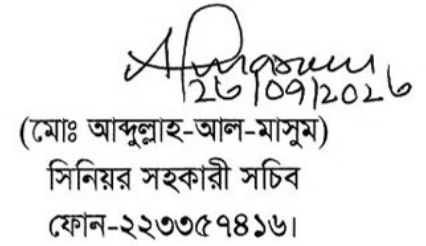 26/09/2026
(মোঃ আব্দুল্লাহ-আল-মাসুম)
সিনিয়র সহকারী সচিব
ফোন-২২৩৩৫৭৪১৬।